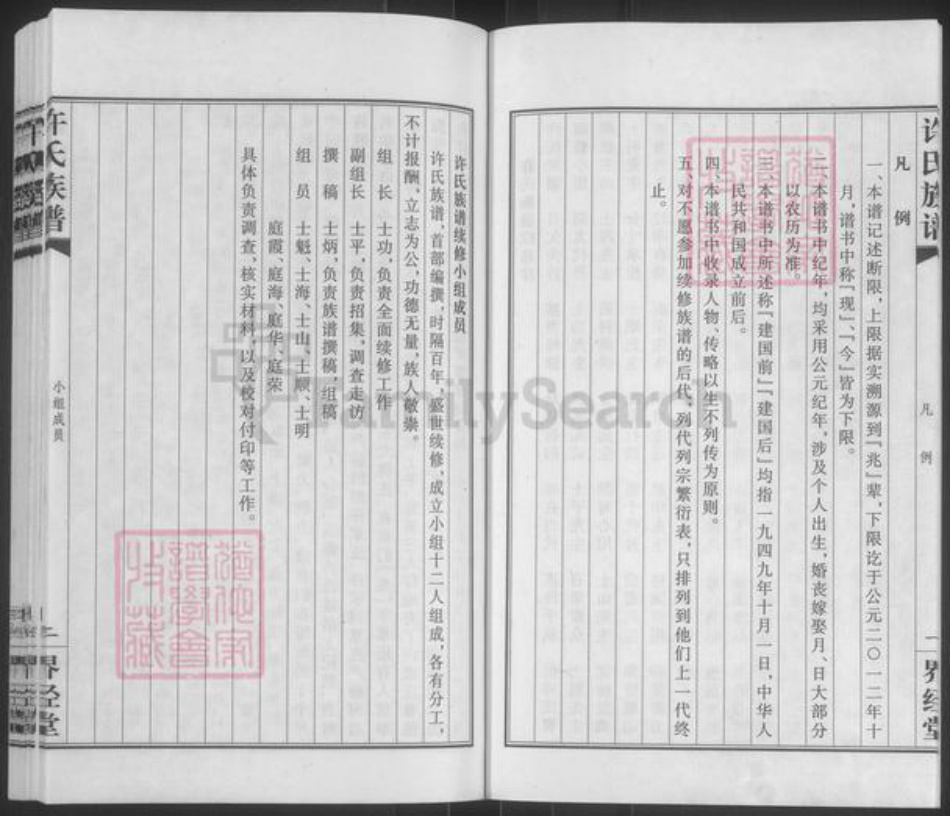 许氏族谱
凡例
一
界经堂
凡 例
一、本谱记述断限，上限据实溯源到『兆』辈，下限讫于公元二〇一二年十
月，谱书中称『现』、『今』皆为下限。
二、本谱书中纪年，均采用公元纪年，涉及个人出生，婚丧嫁娶月、日大部分
以农历为准。
三、本谱书中所述称『建国前』『建国后』均指一九四九年十月一日，中华人
民共和国成立前后。
四、本谱书中收录人物、传略以生不列传为原则。
五、对不愿参加续修族谱的后代，列代列宗繁衍表，只排列到他们上一代终
止。
许氏族谱续修小组成员
许氏族谱，首部编撰，时隔百年，盛世续修，成立小组十二人组成，各有分工，
不计报酬，立志为公，功德无量，族人敬崇。
组 长 士功，负责全面续修工作
副组长 士平，负责招集，调查走访
撰 稿 士炳，负责族谱撰稿，组稿
组 员 士魁、士海、士山、士顺、士明
庭霞、庭海、庭华、庭荣
具体负责调查，核实材料，以及校对付印等工作。
许氏族谱
小组成员
二
界经堂
FamilySearch
譜學會
收藏